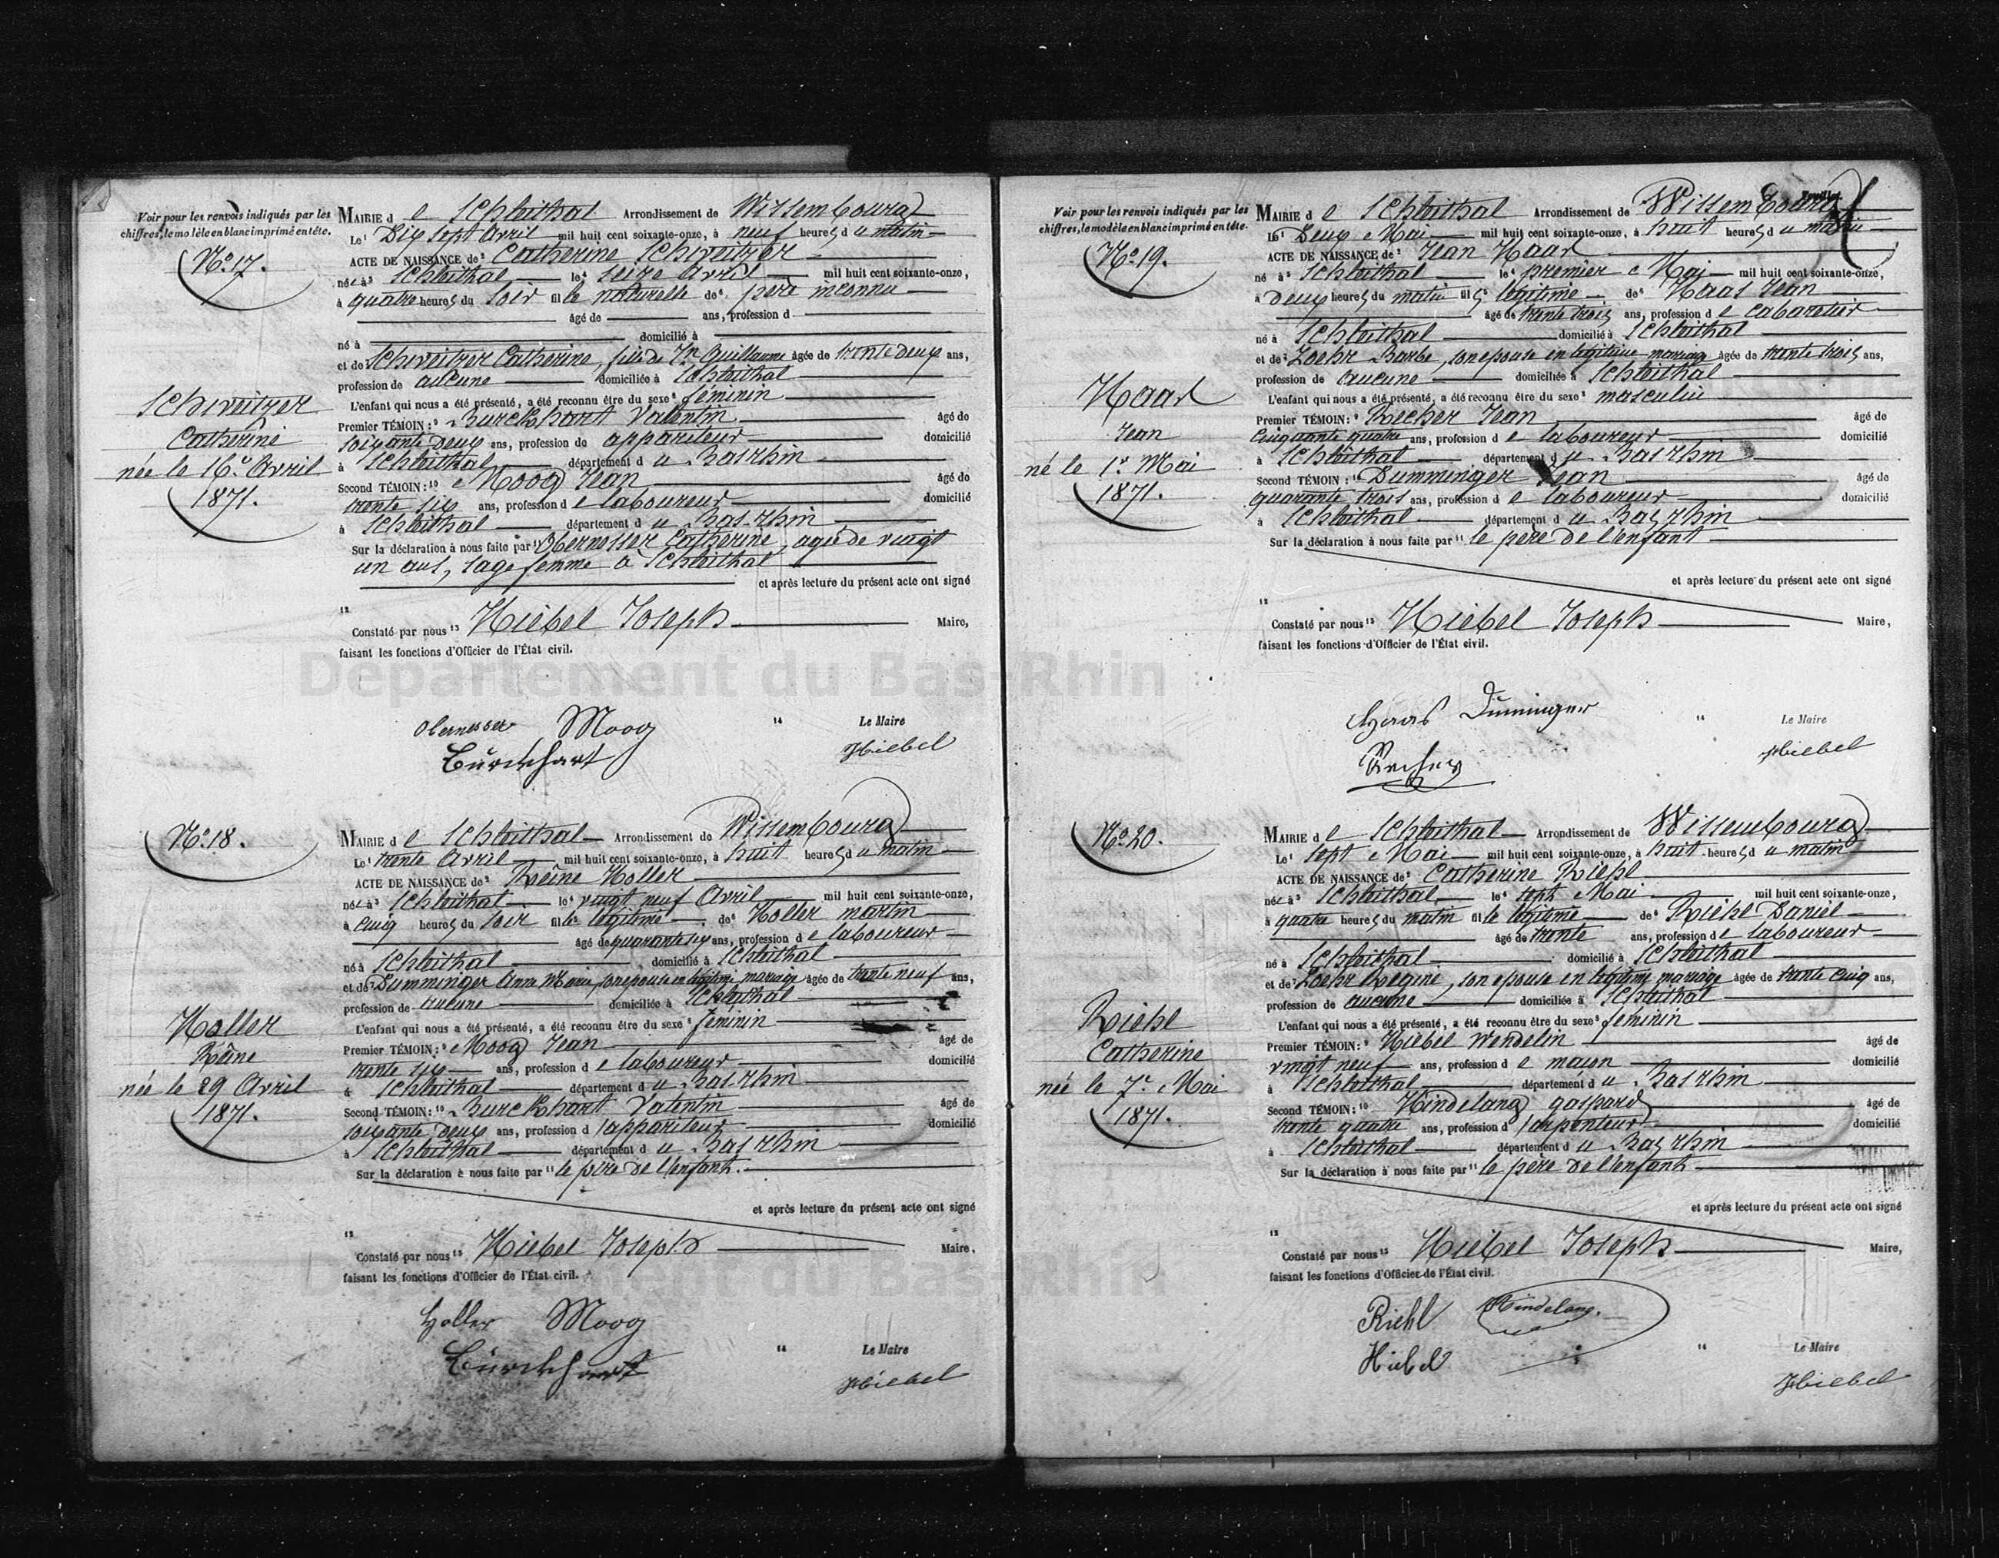 Voir pour les renvois indiqués par les
chiffres, le modèle en blanc imprimé en tête.
No. 17.
Schweitzer
Catherine
née le 16e Avril
1871.
MAIRIE de Schleithal Arrondissement de Wissembourg
Le 1 Dix sept Avril mil huit cent soixante-onze, à neuf heures du matin
ACTE DE NAISSANCE de 2 Catherine Schweitzer
née à 3 Schleithal le 4 seize Avril mil huit cent soixante-onze,
à quatre heures du soir fille naturelle de 6 père inconnu
âgé de ans, profession d
né à domicilié à
et de 7 Schweitzer Catherine, fille de Guillaume âgée de trente deux ans,
profession de aucune domiciliée à Schleithal
L'enfant qui nous a été présenté, a été reconnu être du sexe 8 féminin
Premier TÉMOIN : 9 Burckhart Valentin âgé de
soixante deux ans, profession de appariteur domicilié
à Schleithal département du Bas-rhin
Second TÉMOIN : 10 Moog Jean âgé de
trente six ans, profession de laboureur domicilié
à Schleithal département du Bas-rhin
Sur la déclaration à nous faite par 11 Obernosser Catherine, agée de vingt
un ans, sage femme à Schleithal
et après lecture du présent acte ont signé
12
Constaté par nous 13 Hiebel Joseph Maire,
faisant les fonctions d'Officier de l'État civil.
Département du Bas-Rhin
Obernosser Moog 14 Le Maire
Burckhart Hiebel
No. 18.
Holler
Reine
née le 29 Avril
1871.
MAIRIE de Schleithal Arrondissement de Wissembourg
Le 1 trente Avril mil huit cent soixante-onze, à huit heures du matin
ACTE DE NAISSANCE de 2 Reine Holler
née à 3 Schleithal le 4 vingt neuf Avril mil huit cent soixante-onze,
à cinq heures du soir fille légitime de 6 Holler martin
âgé de quarante six ans, profession de laboureur
né à Schleithal domicilié à Schleithal
et de 7 Dumminger Anna Marie, son epouse en légitime mariage âgée de trente neuf ans,
profession de aucune domiciliée à Schleithal
L'enfant qui nous a été présenté, a été reconnu être du sexe 8 féminin
Premier TÉMOIN : 9 Moog Jean âgé de
trente six ans, profession de laboureur domicilié
à Schleithal département du Bas-rhin
Second TÉMOIN : 10 Burckhart Valentin âgé de
soixante deux ans, profession d'appariteur domicilié
à Schleithal département du Bas rhin
Sur la déclaration à nous faite par 11 le père de l'enfant.
et après lecture du présent acte ont signé
12
Constaté par nous 13 Hiebel Joseph Maire,
faisant les fonctions d'Officier de l'État civil.
Département du Bas-Rhin
Holler Moog 14 Le Maire
Burckhart Hiebel
Voir pour les renvois indiqués par les
chiffres, le modèle en blanc imprimé en tête.
No. 19.
Haas
Jean
né le 1er Mai
1871.
Feuillet
MAIRIE de Schleithal Arrondissement de Wissembourg
Le 1 Deux Mai mil huit cent soixante-onze, à huit heures du matin
ACTE DE NAISSANCE de 2 Jean Haas
né à 3 Schleithal le 4 premier Mai mil huit cent soixante-onze,
à Deux heures du matin fils légitime de 6 Haas Jean
âgé de trente trois ans, profession de cabaretier
né à Schleithal domicilié à Schleithal
et de 7 Loehr Barbe, son epouse en légitime mariage âgée de trente trois ans,
profession de aucune domiciliée à Schleithal
L'enfant qui nous a été présenté, a été reconnu être du sexe 8 masculin
Premier TÉMOIN : 9 Recher Jean âgé de
cinquante quatre ans, profession de laboureur domicilié
à Schleithal département du Bas rhin
Second TÉMOIN : 10 Dumminger Jean âgé de
quarante trois ans, profession de laboureur domicilié
à Schleithal département du Bas rhin
Sur la déclaration à nous faite par 11 le père de l'enfant
et après lecture du présent acte ont signé
12
Constaté par nous 13 Hiebel Joseph Maire,
faisant les fonctions d'Officier de l'État civil.
Haas Dumminger 14 Le Maire
Recher Hiebel
No. 20.
Riehl
Catherine
née le 7e Mai
1871.
MAIRIE de Schleithal Arrondissement de Wissembourg
Le 1 sept Mai mil huit cent soixante-onze, à huit heures du matin
ACTE DE NAISSANCE de 2 Catherine Riehl
née à 3 Schleithal le 4 sept Mai mil huit cent soixante-onze,
à quatre heures du matin fille légitime de 6 Riehl Daniel
âgé de trente ans, profession de laboureur
né à Schleithal domicilié à Schleithal
et de 7 Loehr Regine, son epouse en légitime mariage âgée de trente cinq ans,
profession de aucune domiciliée à Schleithal
L'enfant qui nous a été présenté, a été reconnu être du sexe 8 féminin
Premier TÉMOIN : 9 Hiebel Wendelin âgé de
vingt neuf ans, profession de maçon domicilié
à Schleithal département du Bas rhin
Second TÉMOIN : 10 Hindelang gaspard âgé de
trente quatre ans, profession d'arpenteur domicilié
à Schleithal département du Bas rhin
Sur la déclaration à nous faite par 11 le père de l'enfant
et après lecture du présent acte ont signé
12
Constaté par nous 13 Hiebel Joseph Maire,
faisant les fonctions d'Officier de l'État civil.
Riehl Hindelang.
Hiebel 14 Le Maire
Hiebel